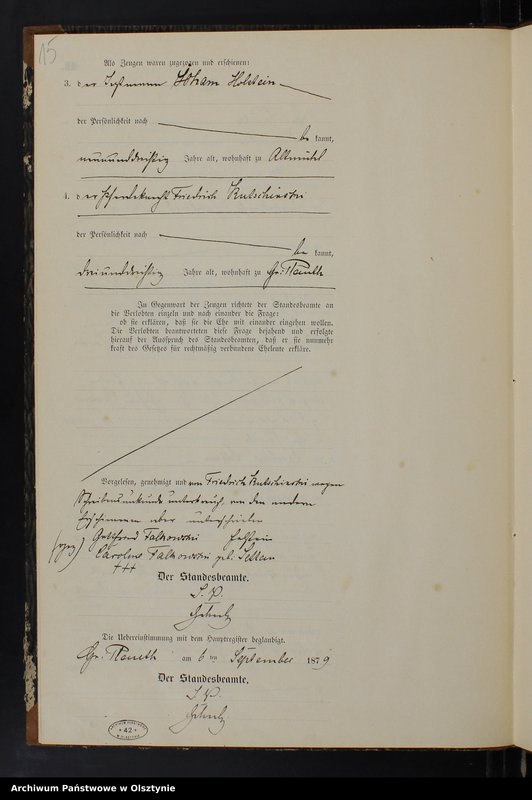 15
Als Zeugen waren zugezogen und erschienen:
3. der Instmann Johann Holstein
der Persönlichkeit nach
be kannt,
neununddreißig Jahre alt, wohnhaft zu Altmühl
4. der Friedrich Kutschinski
der Persönlichkeit nach
be kannt,
dreiunddreißig Jahre alt, wohnhaft zu Gr:
In Gegenwart der Zeugen richtete der Standesbeamte an
die Verlobten einzeln und nach einander die Frage:
ob sie erklären, daß sie die Ehe mit einander eingehen wollen.
Die Verlobten beantworteten diese Frage bejahend und erfolgte
hierauf der Ausspruch des Standesbeamten, daß er sie nunmehr
kraft des Gesetzes für rechtmäßig verbundene Eheleute erkläre.
Vorgelesen, genehmigt und von Friedrich Kutschinski wegen
Schreibensunkunde unterkreuzt, von den andern
Erschienenen aber unterschrieben
Gottfried Falkowski
Caroline Falkowski geb.
+++
Der Standesbeamte.
I. V.
Die Uebereinstimmung mit dem Hauptregister beglaubigt.
Gr. am 6 ten September 1879
Der Standesbeamte.
I. V.
42
Archiwum Państwowe w Olsztynie